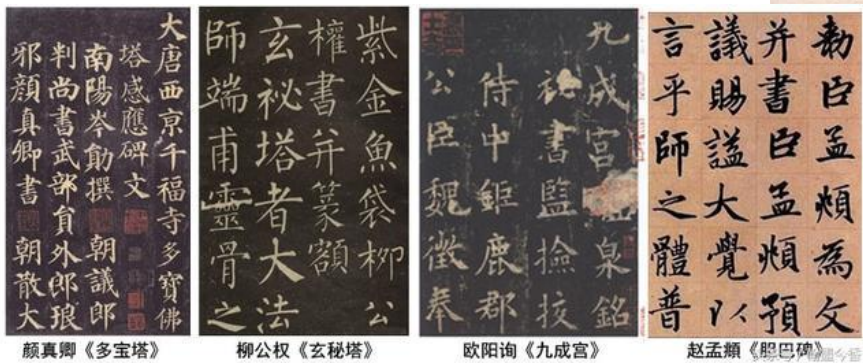 大唐西京千福寺多寶佛
塔感應碑文
南陽岑勛撰 朝議郎
判尚書武部員外郎琅
邪顏真卿書 朝散大
颜真卿《多宝塔》
紫金魚袋柳公
權書并篆額
玄祕塔者大法
師端甫靈骨之
柳公权《玄秘塔》
九成宮醴泉銘
祕書監撿挍
侍中鉅鹿郡
公臣魏徵奉
欧阳询《九成宫》
勑臣孟頫為文
并書臣孟頫預
議賜謚大覺以
言乎師之體普
赵孟頫《胆巴碑》